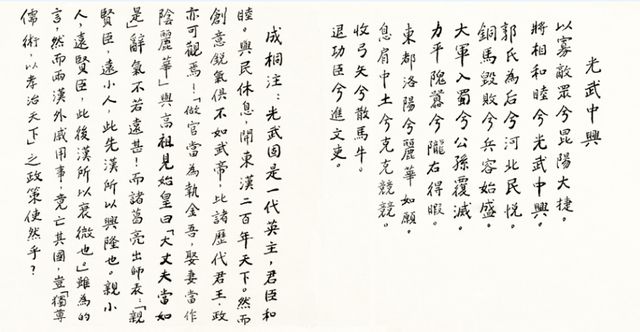 光武中興
以寡敵眾兮昆陽大捷。
將相和睦兮光武中興。
郭氏為后兮河北民悅。
銅馬毀敗兮兵容始盛。
大軍入蜀兮公孫覆滅。
力平隗囂兮隴右得暇。
東都洛陽兮麗華如願。
息肩中土兮克克兢兢。
收弓矢兮散馬牛。
退功臣兮進文吏。
成桐注：光武固是一代英主，君臣和
睦。與民休息，開東漢二百年天下。然而
創意銳氣俱不如武帝！此諸歷代君王，政
亦可觀焉！「做官當為執金吾，娶妻當作
陰麗華」與高祖見始皇曰「大丈夫當如
是」辭氣不若遠甚！而諸葛亮出師表：「親
賢臣，遠小人，此先漢所以興隆也。親小
人，遠賢臣，此後漢所以衰微也。」雖為的
言，然而兩漢外戚用事，竟亡其國，豈「獨尊
儒術，以孝治天下」之政策使然乎？